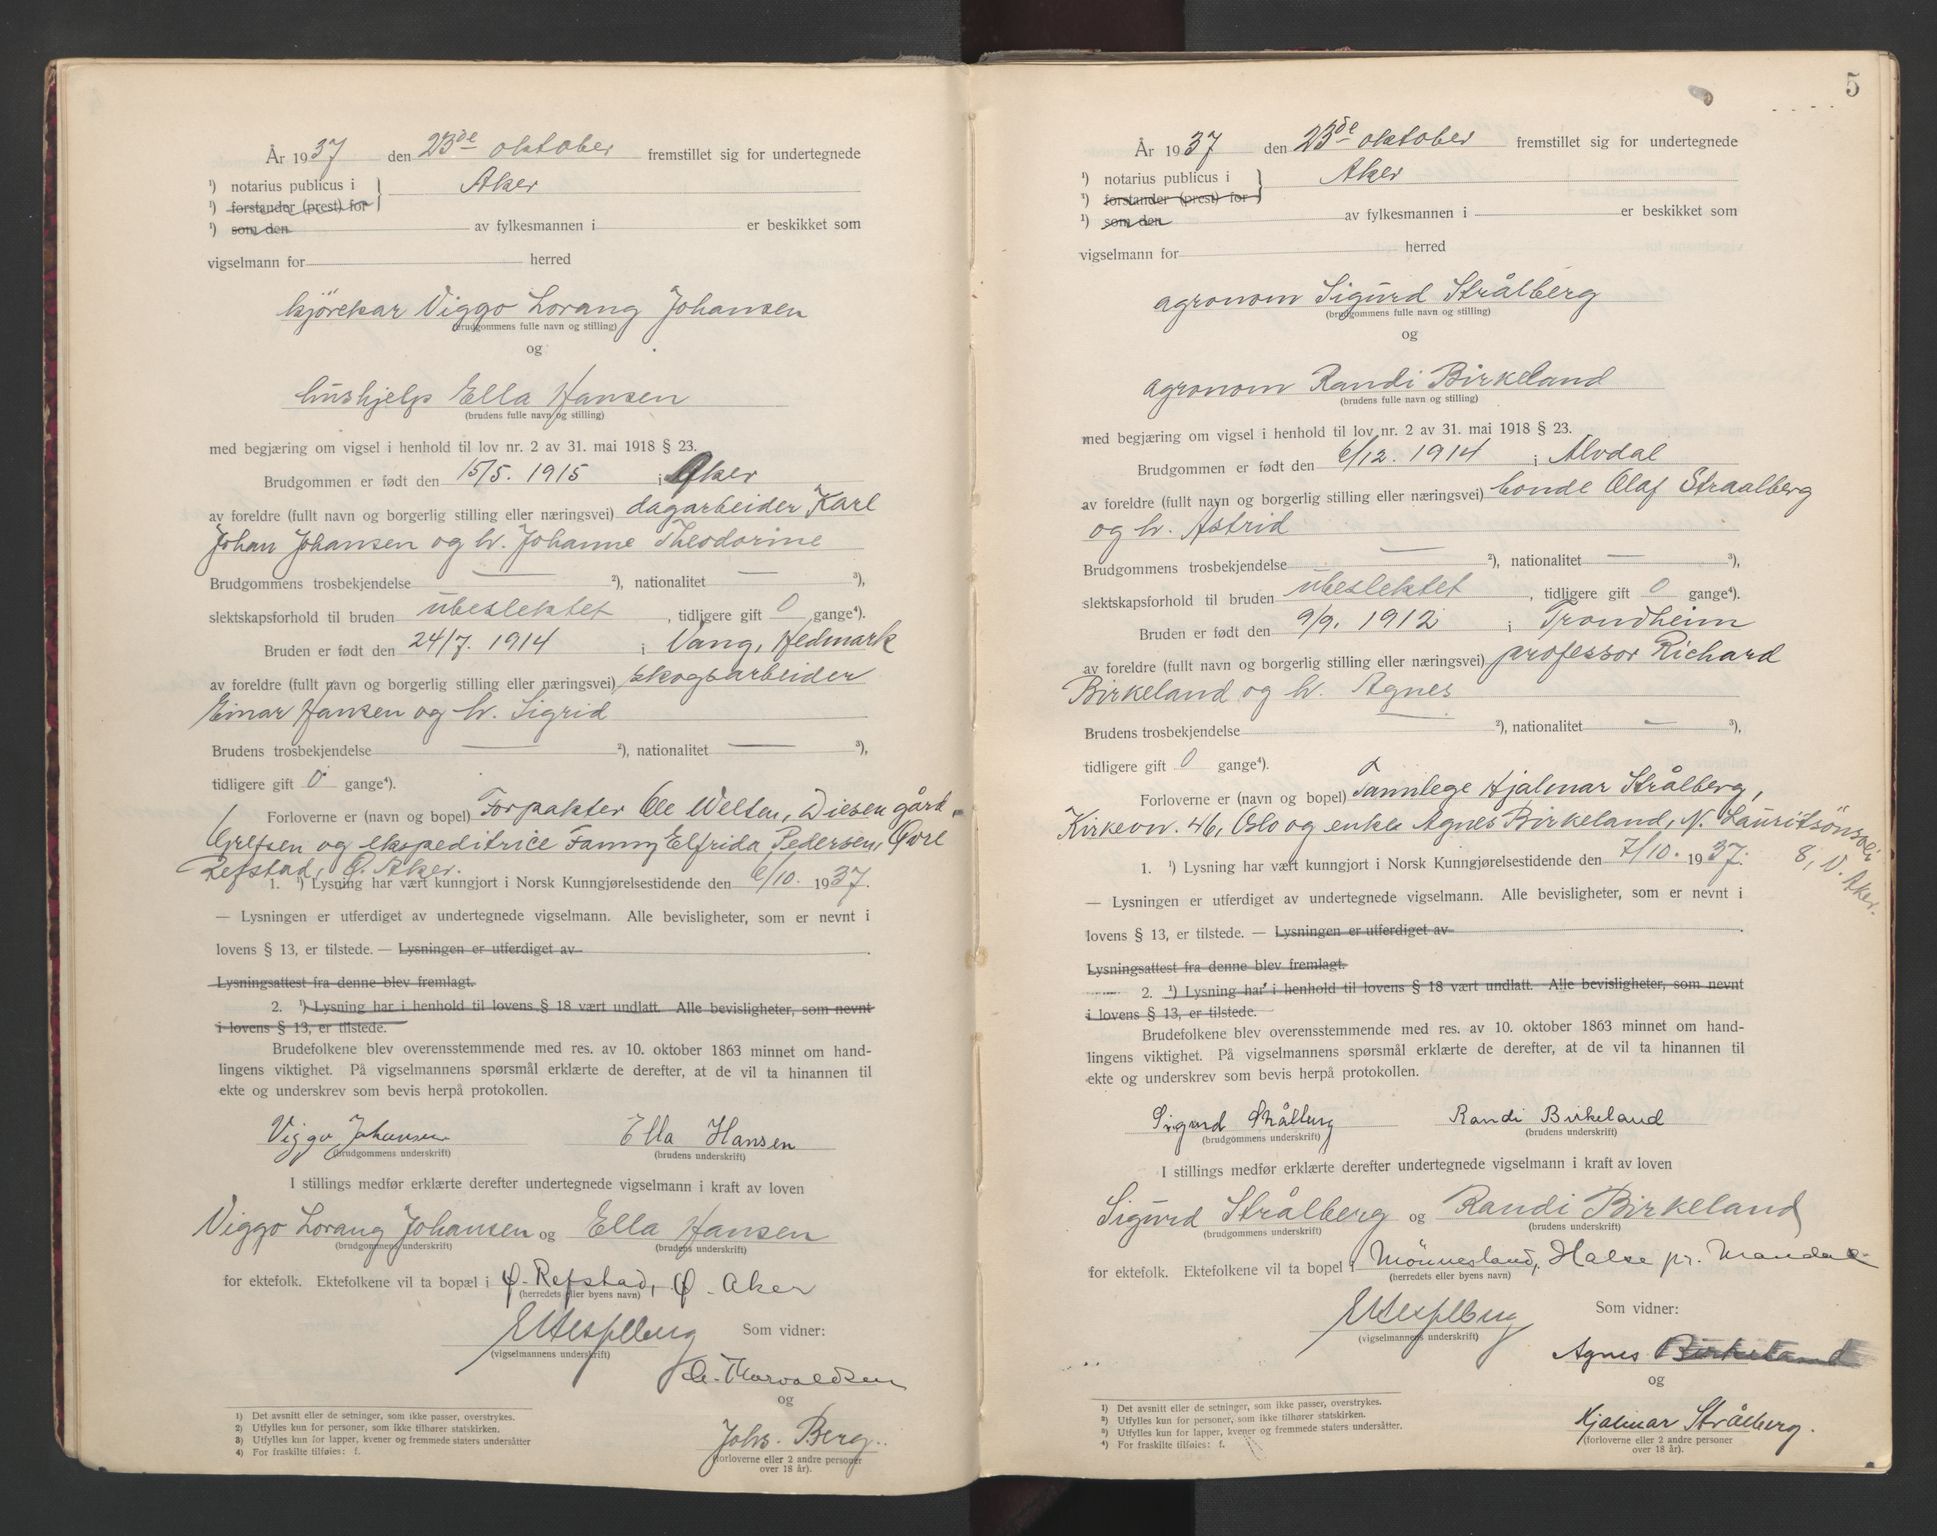 År 1937 den 23de oktober fremstillet sig for undertegnede
¹) notarius publicus i Aker
¹) forstander (prest) for
¹) som den av fylkesmannen i er beskikket som
vigselmann for herred
kjørekar Viggo Lorang Johansen
(brudgommens fulle navn og stilling)
og
hushjelp Ella Hansen
(brudens fulle navn og stilling)
med begjæring om vigsel i henhold til lov nr. 2 av 31. mai 1918 § 23.
Brudgommen er født den 15/5. 1915 i Aker
av foreldre (fullt navn og borgerlig stilling eller næringsvei) dagarbeider Karl
Johan Johansen og h. Johanne Theodorine
Brudgommens trosbekjendelse — ²), nationalitet — ³),
slektskapsforhold til bruden ubeslektet, tidligere gift 0 gange⁴).
Bruden er født den 24/7. 1914 i Vang, Hedmark
av foreldre (fullt navn og borgerlig stilling eller næringsvei) skogsarbeider
Einar Hansen og h. Sigrid
Brudens trosbekjendelse — ²), nationalitet — ³),
tidligere gift 0 gange⁴).
Forloverne er (navn og bopel) Forpakter Ole Welten, Disen gård,
Grefsen og ekspeditrice Fanny Elfrida Pedersen, Øvre
Refstad, Ø. Aker.
1. ¹) Lysning har vært kunngjort i Norsk Kunngjørelsestidende den 6/10. 1937.
— Lysningen er utferdiget av undertegnede vigselmann. Alle bevisligheter, som er nevnt i
lovens § 13, er tilstede. — Lysningen er utferdiget av
Lysningsattest fra denne blev fremlagt.
2. ¹) Lysning har i henhold til lovens § 18 vært undlatt. Alle bevisligheter, som nevnt
i lovens § 13, er tilstede.
Brudefolkene blev overensstemmende med res. av 10. oktober 1863 minnet om hand-
lingens viktighet. På vigselmannens spørsmål erklærte de derefter, at de vil ta hinannen til
ekte og underskrev som bevis herpå protokollen.
Viggo Johansen Ella Hansen
(brudgommens underskrift) (brudens underskrift)
I stillings medfør erklærte derefter undertegnede vigselmann i kraft av loven
Viggo Lorang Johansen og Ella Hansen
(brudgommens underskrift) (brudens underskrift)
for ektefolk. Ektefolkene vil ta bopæl i Ø. Refstad, Ø. Aker
(herredets eller byens navn)
Som vidner:
(vigselmannens underskrift)
Thorvaldsen
og
Johs. Berg.
(forloverne eller 2 andre personer
over 18 år).
1) Det avsnitt eller de setninger, som ikke passer, overstrykes.
2) Utfylles kun for personer, som ikke tilhører statskirken.
3) Utfylles kun for lapper, kvener og fremmede staters undersåtter
4) For fraskilte tilføies: f.
5
År 1937 den 23de oktober fremstillet sig for undertegnede
¹) notarius publicus i Aker
¹) forstander (prest) for
¹) som den av fylkesmannen i er beskikket som
vigselmann for herred
agronom Sigurd Strålberg
(brudgommens fulle navn og stilling)
og
agronom Randi Birkeland
(brudens fulle navn og stilling)
med begjæring om vigsel i henhold til lov nr. 2 av 31. mai 1918 § 23.
Brudgommen er født den 6/12. 1914 i Alvdal
av foreldre (fullt navn og borgerlig stilling eller næringsvei) bonde Olaf Straalberg
og h. Astrid
Brudgommens trosbekjendelse — ²), nationalitet — ³),
slektskapsforhold til bruden ubeslektet, tidligere gift 0 gange⁴).
Bruden er født den 9/9. 1912 i Trondheim
av foreldre (fullt navn og borgerlig stilling eller næringsvei) professor Richard
Birkeland og h. Agnes
Brudens trosbekjendelse ²), nationalitet — ³),
tidligere gift 0 gange⁴).
Forloverne er (navn og bopel) Tannlege Hjalmar Strålberg,
Kirkevn. 46, Oslo og enke Agnes Birkeland, N. Lauritsønsvei
8, V. Aker.
1. ¹) Lysning har vært kunngjort i Norsk Kunngjørelsestidende den 7/10. 1937.
— Lysningen er utferdiget av undertegnede vigselmann. Alle bevisligheter, som er nevnt i
lovens § 13, er tilstede. — Lysningen er utferdiget av
Lysningsattest fra denne blev fremlagt.
2. ¹) Lysning har i henhold til lovens § 18 vært undlatt. Alle bevisligheter, som nevnt
i lovens § 13, er tilstede.
Brudefolkene blev overensstemmende med res. av 10. oktober 1863 minnet om hand-
lingens viktighet. På vigselmannens spørsmål erklærte de derefter, at de vil ta hinannen til
ekte og underskrev som bevis herpå protokollen.
Sigurd Strålberg Randi Birkeland
(brudgommens underskrift) (brudens underskrift)
I stillings medfør erklærte derefter undertegnede vigselmann i kraft av loven
Sigurd Strålberg og Randi Birkeland
(brudgommens underskrift) (brudens underskrift)
for ektefolk. Ektefolkene vil ta bopel i Mønnesland, Halse pr. Mandal
(herredets eller byens navn)
Som vidner:
(vigselmannens underskrift)
Agnes Birkeland
og
Hjalmar Strålberg.
(forloverne eller 2 andre personer
over 18 år).
¹) Det avsnitt eller de setninger, som ikke passer, overstrykes.
²) Utfylles kun for personer, som ikke tilhører statskirken.
³) Utfylles kun for lapper, kvener og fremmede staters undersåtter.
⁴) For fraskilte tilføies: f.